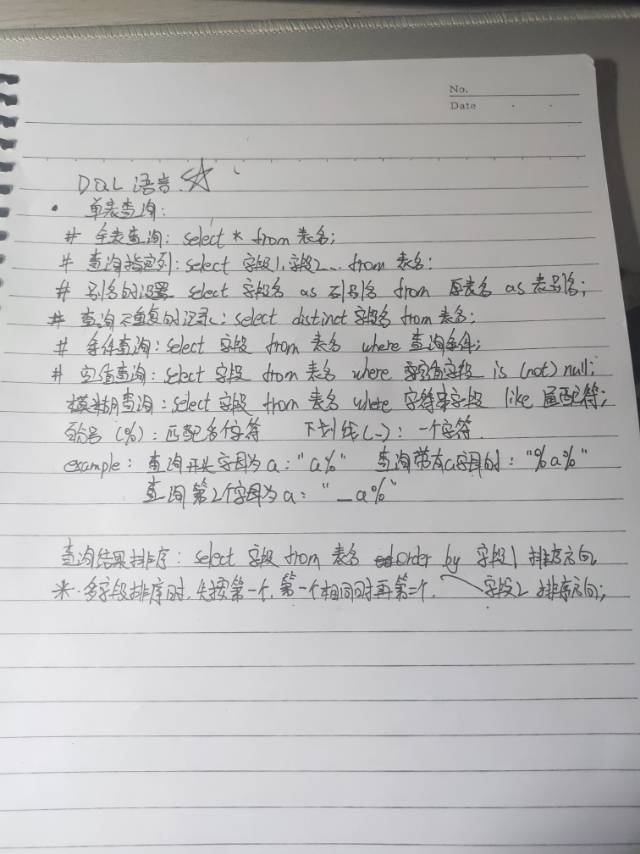 No.
Date
DQL 语言 ☆
· 单表查询：
# 全表查询：select * from 表名；
# 查询指定列：select 字段1，字段2… from 表名；
# 别名的设置 select 字段名 as 列别名 from 原表名 as 表别名；
# 查询不重复的记录：select distinct 字段名 from 表名；
# 条件查询：select 字段 from 表名 where 查询条件；
# 空值查询：select 字段 from 表名 where 字段 is (not) null；
模糊查询：select 字段 from 表名 where 字符串字段 like 匹配符；
(%)：匹配多个字符 下划线(_)：一个字符
example：查询开头字母为a："a%" 查询带有a字母的："%a%"
查询第2个字母为a："_a%"
查询结果排序：select 字段 from 表名 order by 字段1 排序方向
* · 多字段排序时，先按第一个，第一个相同时再第二个． 字段2 排序方向；